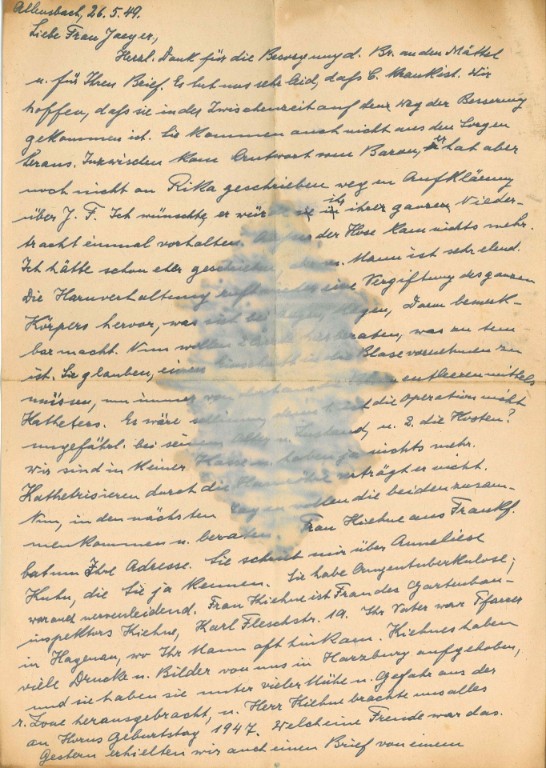 Allensbach, 26.5.49.
Liebe Frau Jaeger,
Herzl. Dank für die Besorgung d. Br. an den Möttel
u. für Ihren Brief. Es tut uns sehr leid, daß E. krank ist. Wir
hoffen, daß sie in des Zwischenzeit auf dem Weg der Besserung
gekommen ist. Sie kommen auch nicht aus den Sorgen
heraus. Inzwischen kam Antwort vom Baron, er hat aber
noch nicht an Rika geschrieben wegen Aufklärung
über J. F. Ich wünschte, er ihrer ganzen Nieder-
tracht einmal vorhalten. der Hose kam nichts mehr.
Ich hätte schon eher geschrieben, Mann ist sehr elend.
Die Harnverhaltung ruft eine Vergiftung des ganzen
Körpers hervor, was sich bemerk-
bar macht. Nun wollen beraten, was zu tun
ist. Sie glauben, einen in die Blase vornehmen zu
müssen, um immer entleeren mittels
Katheters. Es wäre schlimm, die Operation nicht
ungefährl. bei seinem Alter u. Zustand, u. 2. die Kosten?
Wir sind in keiner Kasse u. haben ja nichts mehr.
Kathetrisieren durch die Harnröhre verträgt er nicht.
Nun, in den nächsten Tagen wollen die beiden zusam-
menkommen u. beraten. Frau Kiehne aus Frankf.
bat um Ihre Adresse. Sie schrieb mir über Anneliese
Kuhn, die Sie ja kennen. Sie habe Augentuberkulose;
war auch nervenleidend. Frau Kiehne ist Frau des Gartenbau-
inspektors Kiehne, Karl Fleschstr. 19. Ihr Vater war Pfarrer
in Hagenau, wo Ihr Mann oft hinkam. Kiehnes haben
viele Drucke u. Bilder von uns in Harzburg aufgehoben,
und sie haben sie unter vieler Mühe u. Gefahr aus der
r. Zone herausgebracht, u. Herr Kiehne brachte uns alles
an Horus Geburtstag 1947. Welch eine Freude war das.
Gestern erhielten wir auch einen Brief von einem